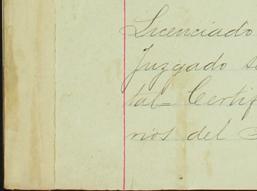 Licenciado
Juzgado s
tal Certif
rios del